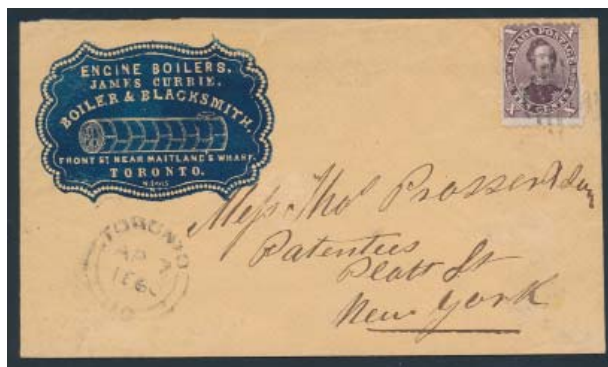 ENGINE BOILERS,
JAMES CURRIE,
BOILER & BLACKSMITH,
FRONT ST NEAR MAITLAND'S WHARF.
TORONTO.
CANADA POSTAGE
TEN CENTS
Messrs Thos Prosser & Son
Patentees
Platt St
New York
TORONTO
AP 7
186